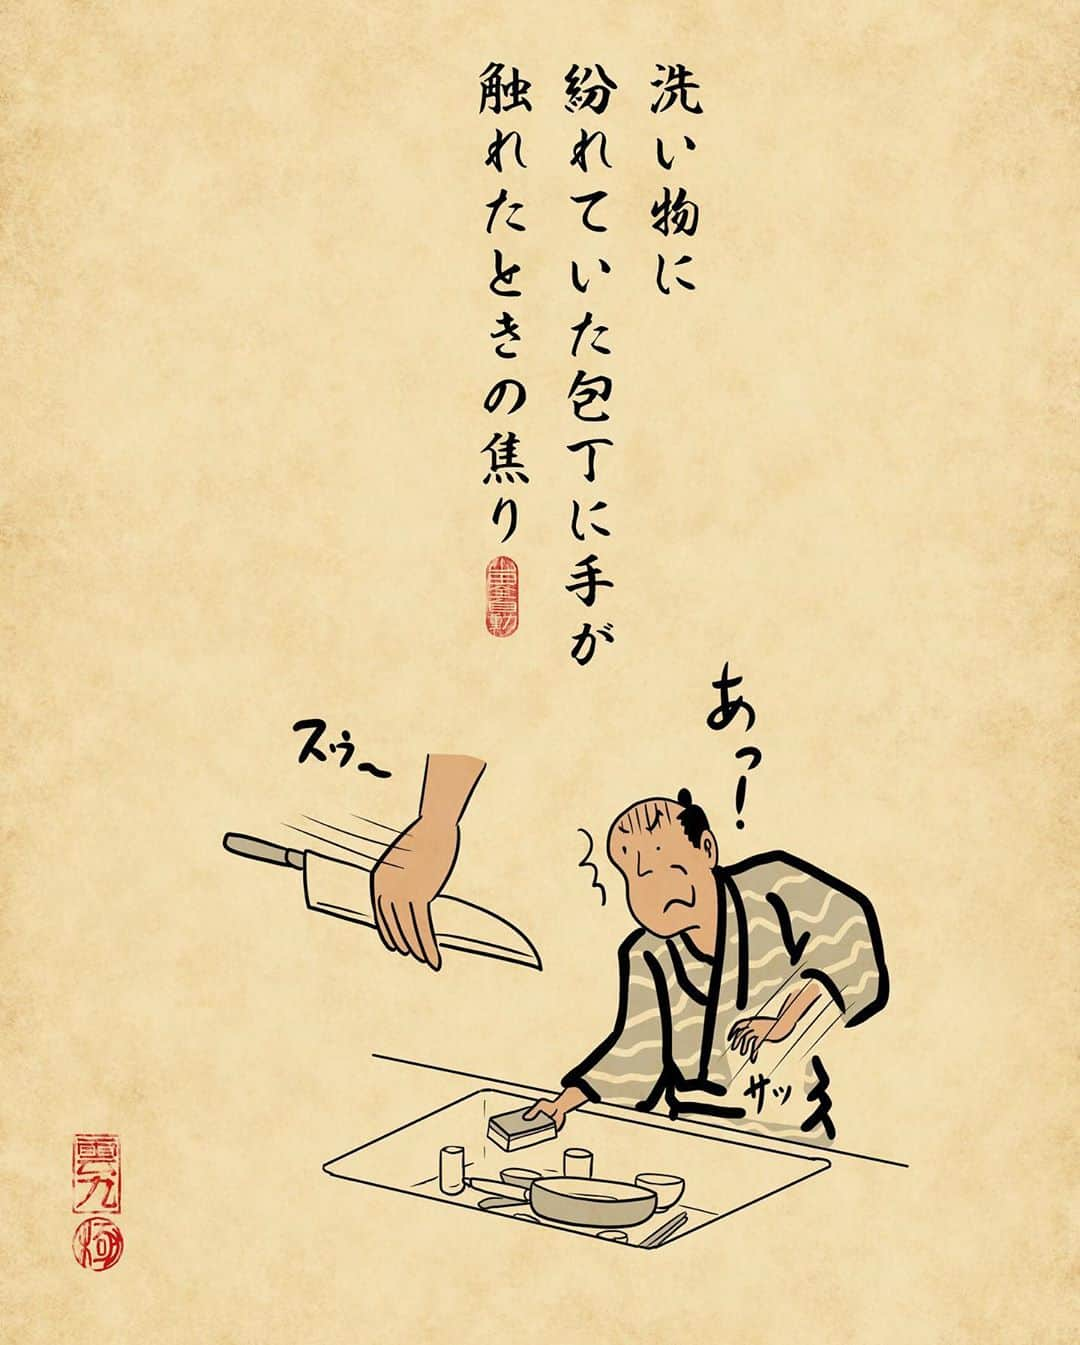 洗い物に
紛れていた包丁に手が
触れたときの焦り
あっ!
スゥ〜
サッ
雲九
極